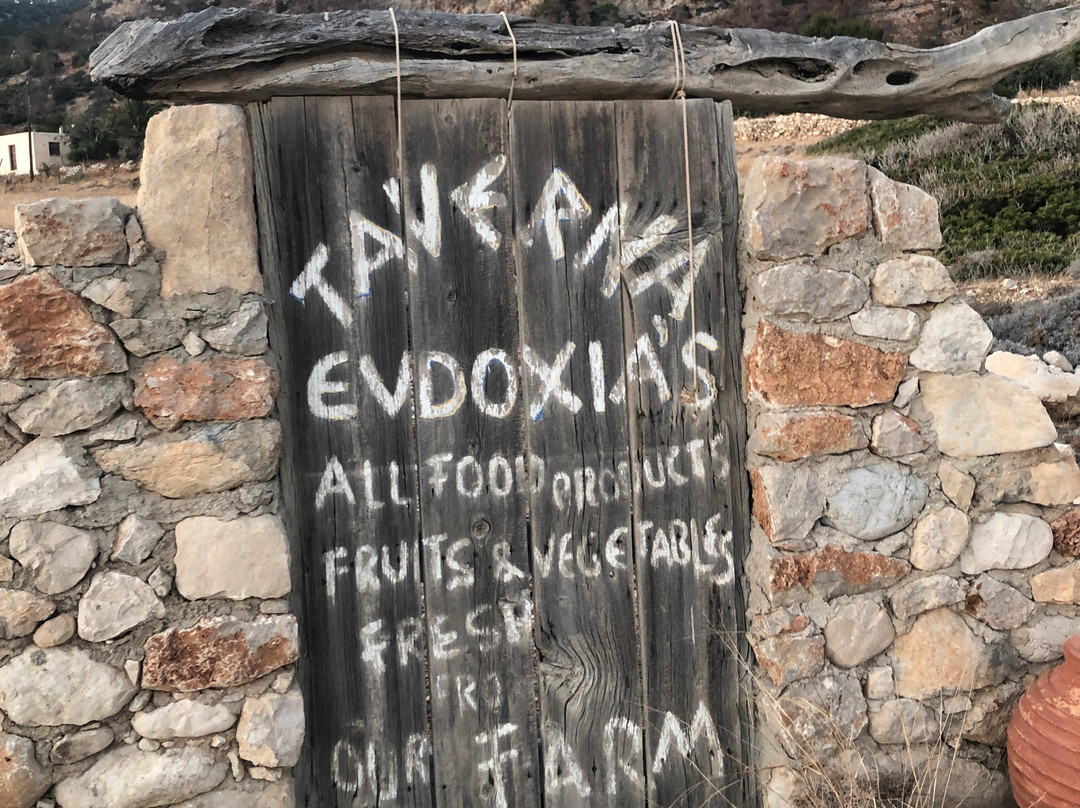 TAVERNA
EVDOXIA'S
ALL FOOD PRODUCTS
FRUITS & VEGETABLES
FRESH
FRO
OUR FARM